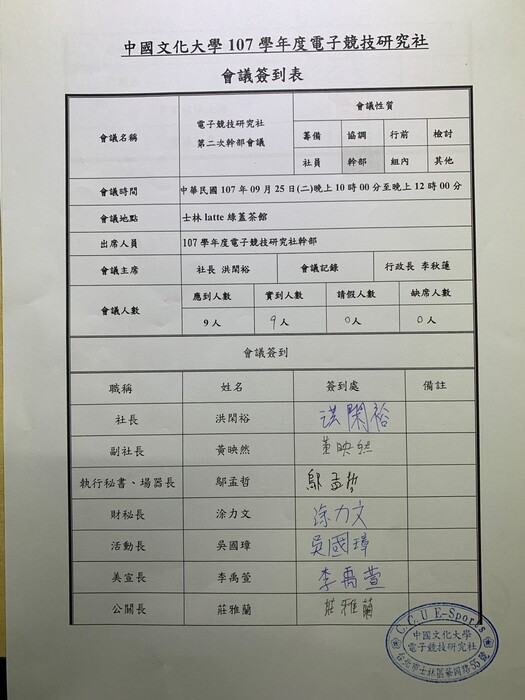 中國文化大學 107 學年度電子競技研究社
會議簽到表
會議名稱
電子競技研究社
第二次幹部會議
會議性質
籌備 協調 行前 檢討
社員 幹部 組內 其他
會議時間 中華民國 107 年 09 月 25 日(二)晚上 10 時 00 分至晚上 12 時 00 分
會議地點 士林 latte 綠蓋茶館
出席人員 107 學年度電子競技研究社幹部
會議主席 社長 洪閑裕 會議記錄 行政長 李秋蓮
會議人數
應到人數 實到人數 請假人數 缺席人數
9 人 9 人 0 人 0 人
會議簽到
職稱 姓名 簽到處 備註
社長 洪閑裕 洪閑裕
副社長 黃映然 黃映然
執行秘書、場器長 鄔孟哲 鄔孟哲
財秘長 涂力文 涂力文
活動長 吳國璋 吳國璋
美宣長 李禹萱 李禹萱
公關長 莊雅蘭 莊雅蘭
C.C.U E-Sports
中國文化大學
電子競技研究社
台北市士林區華岡路55號